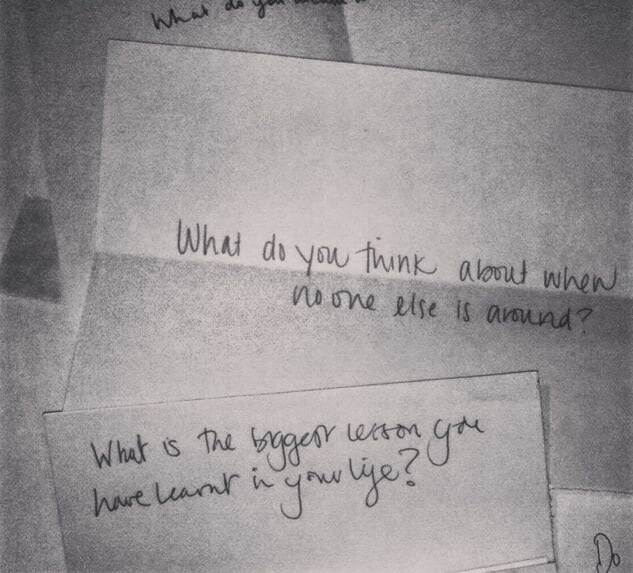 What do you
What do you think about when
no one else is around?
What is the biggest lesson you
have learnt in your life?
Do